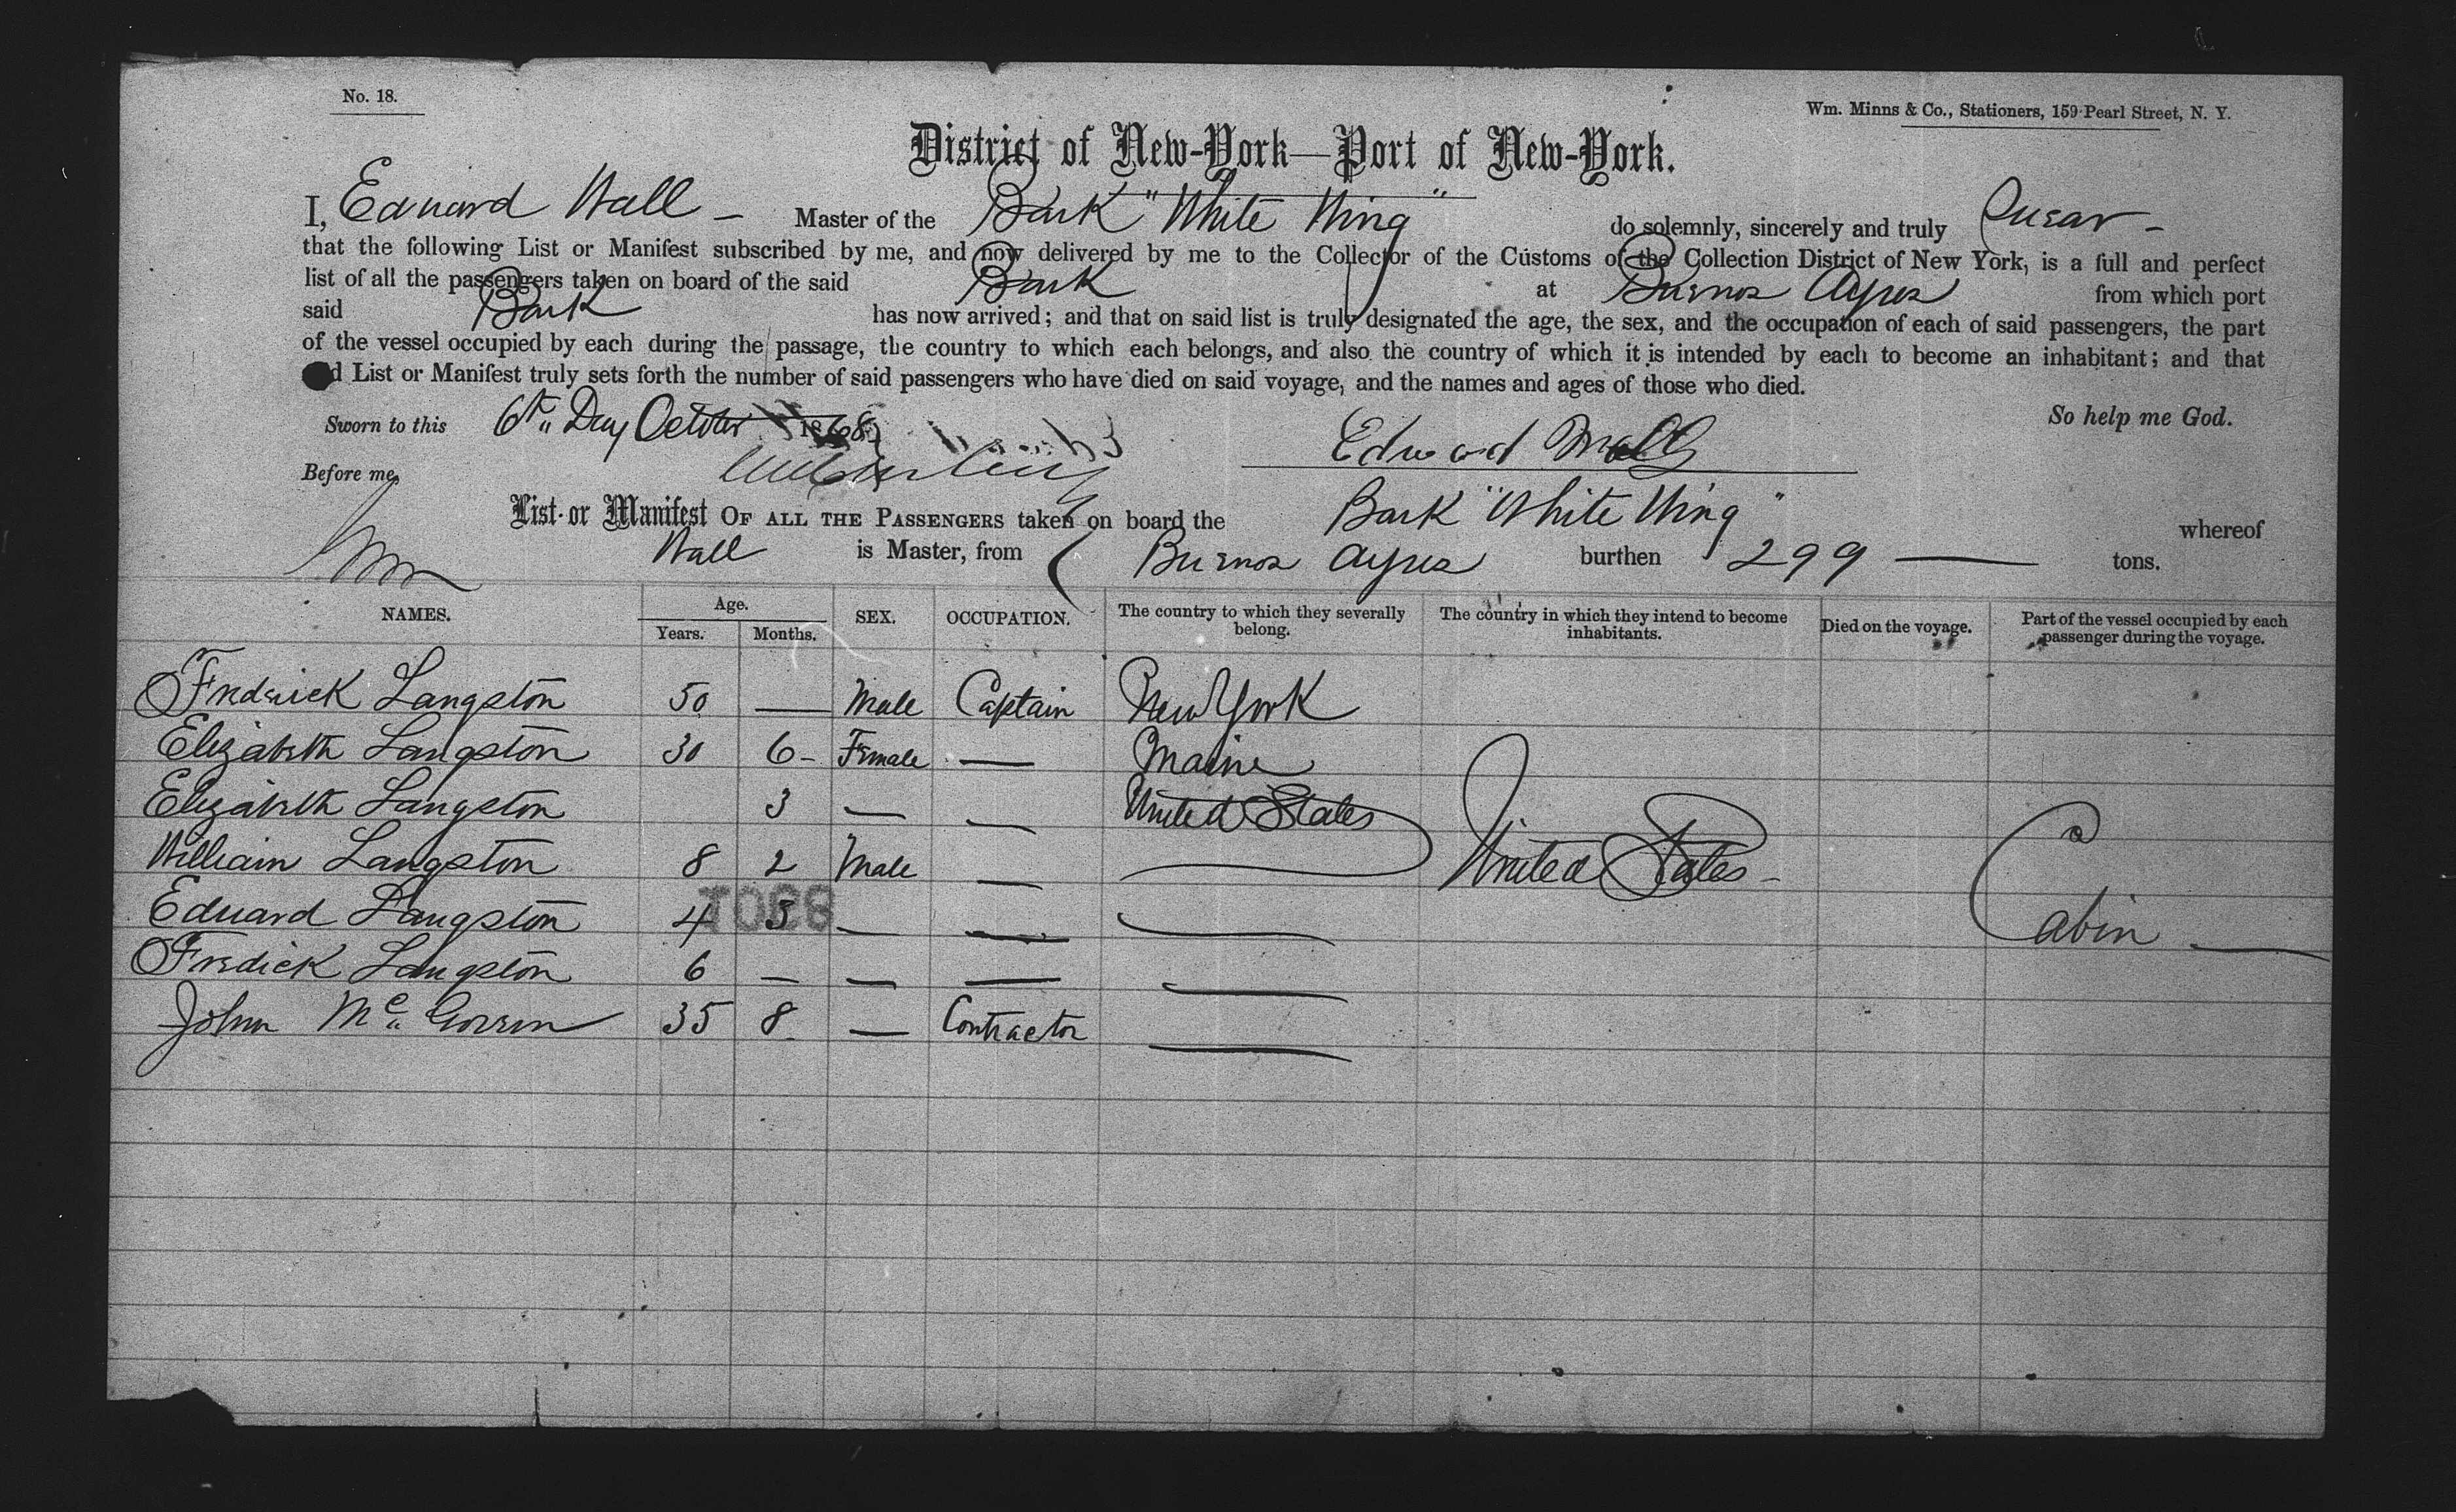 No. 18.
Wm. Minns & Co., Stationers, 159 Pearl Street, N. Y.
District of New-York—Port of New-York.
I, Edward Wall — Master of the Bark "White Wing" do solemnly, sincerely and truly swear —
that the following List or Manifest subscribed by me, and now delivered by me to the Collector of the Customs of the Collection District of New York, is a full and perfect
list of all the passengers taken on board of the said Bark at Buenos Ayres from which port
said Bark has now arrived; and that on said list is truly designated the age, the sex, and the occupation of each of said passengers, the part
of the vessel occupied by each during the passage, the country to which each belongs, and also the country of which it is intended by each to become an inhabitant; and that
d List or Manifest truly sets forth the number of said passengers who have died on said voyage, and the names and ages of those who died.
Sworn to this 6th Day October 1868 So help me God.
Before me, Edward Wall
List or Manifest OF ALL THE PASSENGERS taken on board the Bark "White Wing" whereof
Wall is Master, from Buenos Ayres burthen 299 — tons.
NAMES. Age. Years. Months. SEX. OCCUPATION. The country to which they severally belong. The country in which they intend to become inhabitants. Died on the voyage. Part of the vessel occupied by each passenger during the voyage.
Fredrick Langston 50 — Male Captain New York
Elizabeth Langston 30 6 - Female — Maine
Elizabeth Langston 3 — — United States
William Langston 8 2 Male — — United States - Cabin —
Edward Langston 4 5 — — —
Fredick Langston 6 — — — —
John Mc 35 8 — Contractor —